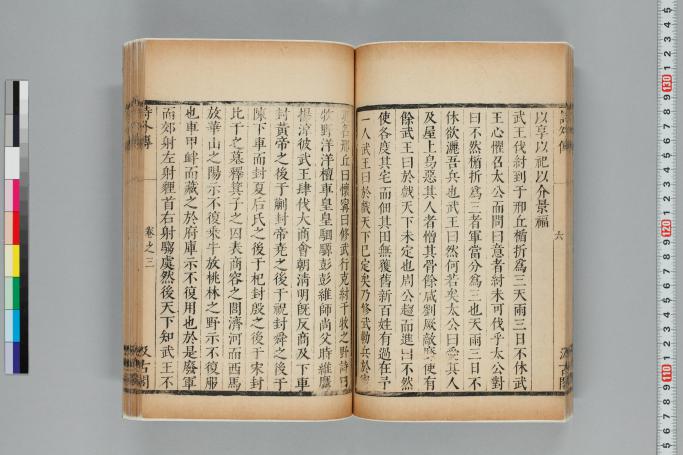 詩外傳
六
以享以祀以介景福
武王伐紂到于邢丘楯折爲三天雨三日不休武
王心懼召太公而問曰意者紂未可伐乎太公對
曰不然楯折爲三者軍當分爲三也天雨三日不
休欲灑吾兵也武王曰然何若矣太公曰愛其人
及屋上烏惡其人者憎其骨餘咸劉厥敵靡使有
餘武王曰於戲天下未定也周公趨而進曰不然
使各度其宅而佃其田無獲舊新百姓有過在予
一人武王曰於戲天下已定矣乃修武勒兵於
名邢丘曰懷寗曰修武行克紂于牧之野詩曰
牧野洋洋檀車皇皇駟騵彭彭維師尚父時維鷹
揚涼彼武王肆伐大商會朝清明旣反商及下車
封黃帝之後于蓟封帝堯之後于祝封舜之後于
陳下車而封夏后氏之後于杞封殷之後于宋封
比干之墓釋箕子之囚表商容之閭濟河而西馬
放華山之陽示不復乘牛放桃林之野示不復服
也車甲衅而藏之於府庫示不復用也於是廢軍
而郊射左射貍首右射騶虞然後天下知武王不
詩外傳
卷之三
汲古閣
汲古閣